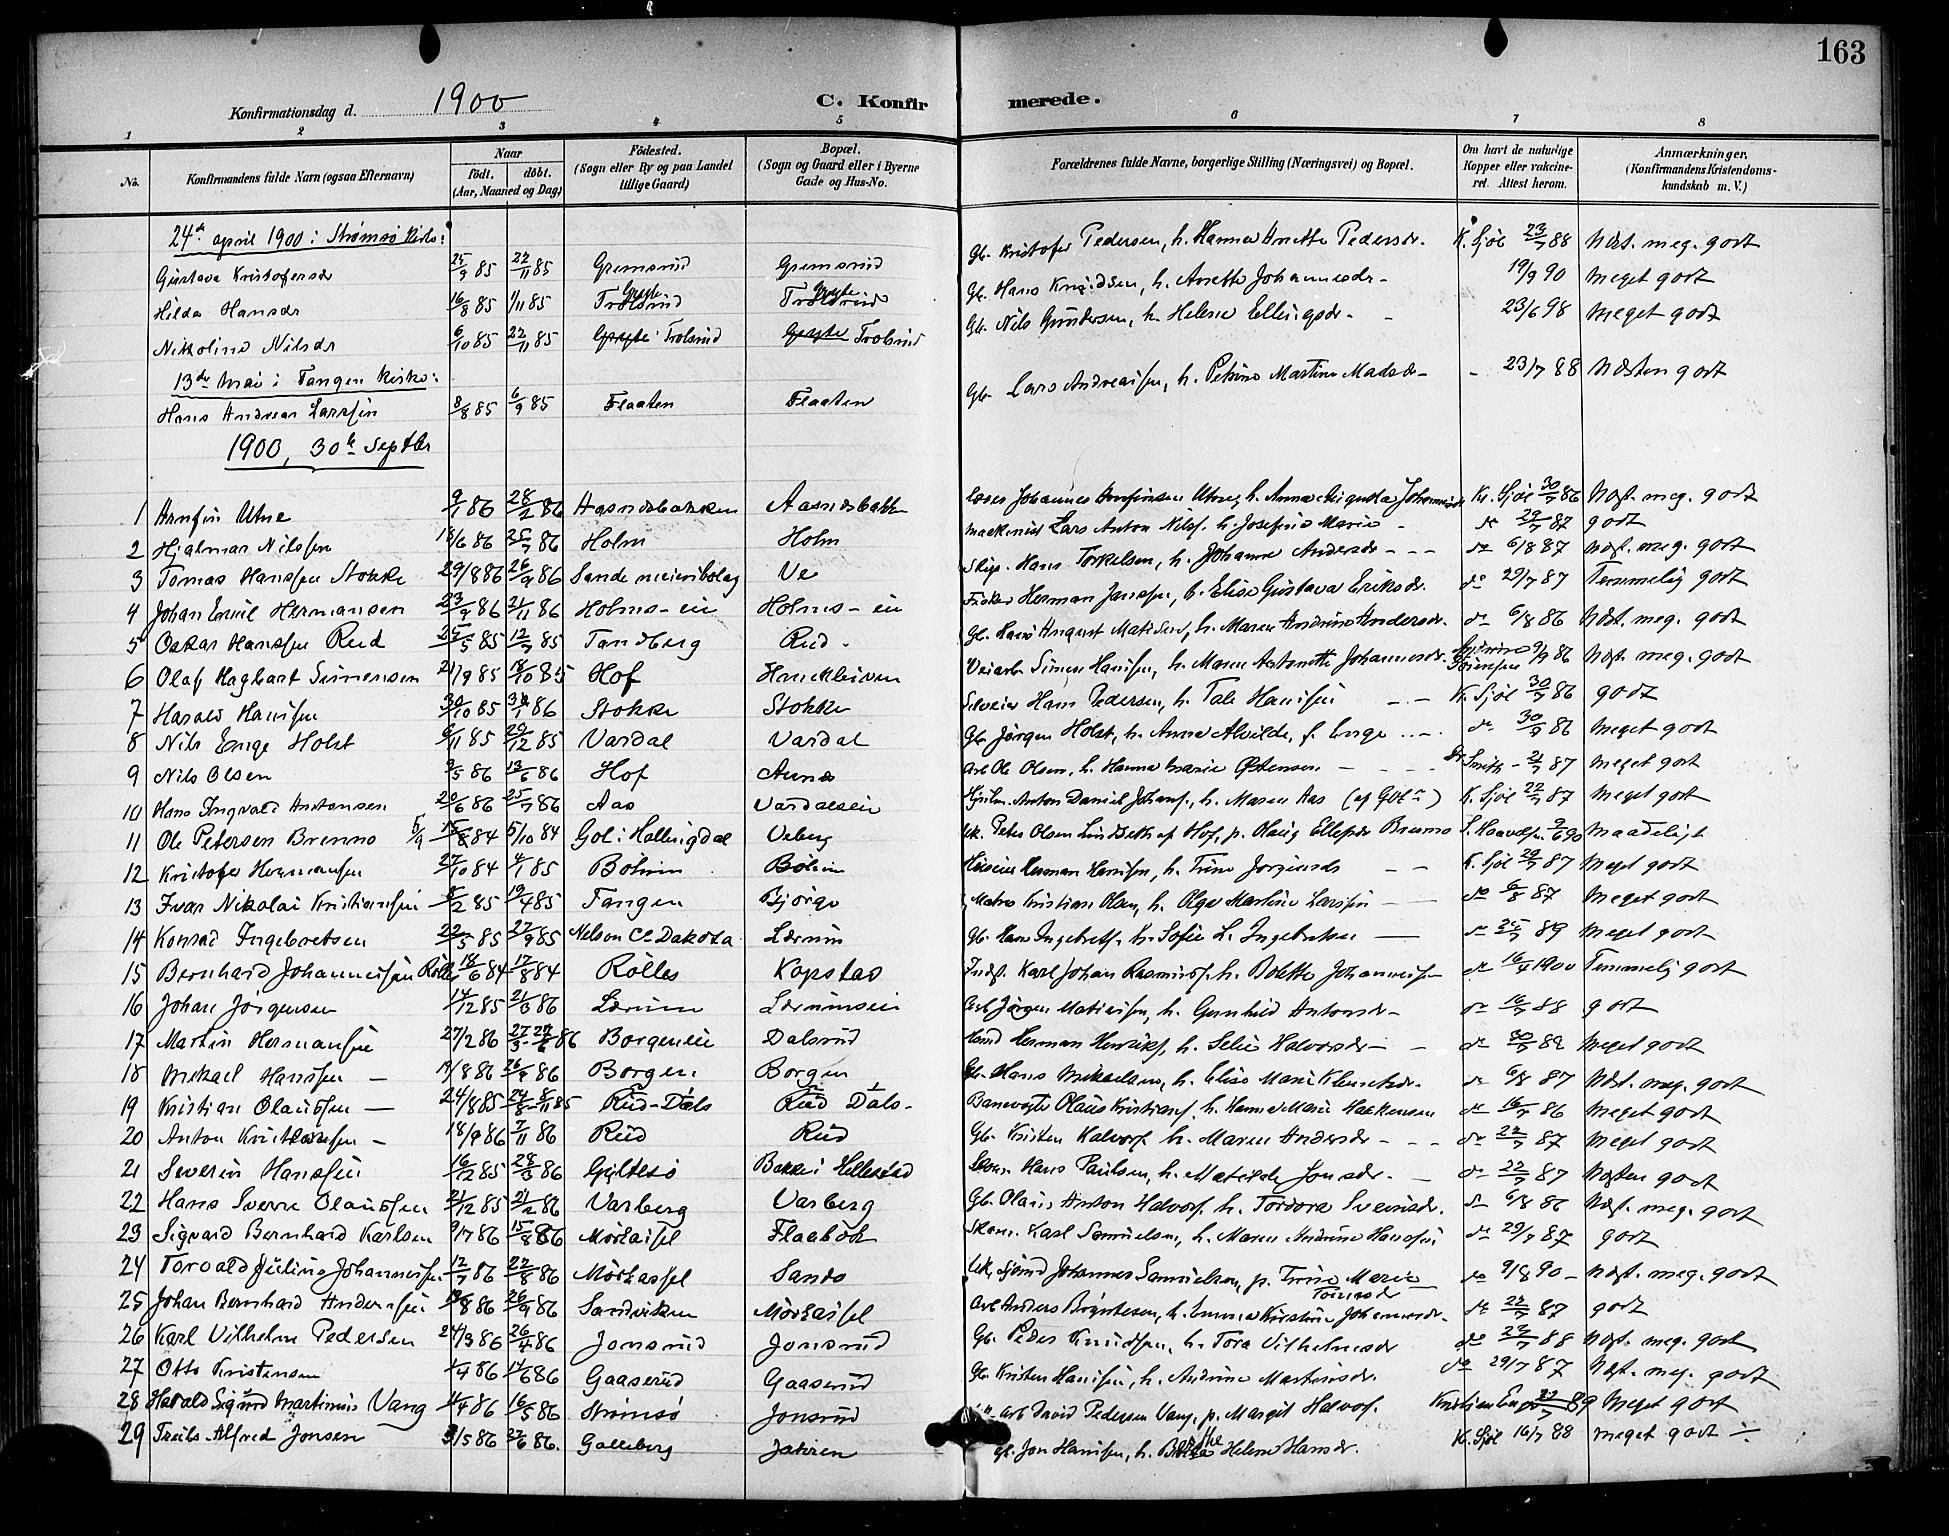 163
Konfirmationsdag d. 1900 C. Konfirmerede.
1 2 3 4 5 6 7 8
No. Konfirmandens fulde Navn (ogsaa Efternavn) Naar født. døbt. (Aar, Maaned og Dag) Fødested. (Sogn eller By og paa Landet tillige Gaard) Bopæl. (Sogn og Gaard eller i Byerne Gade og Hus-No. Forældrenes fulde Navne, borgerlige Stilling (Næringsvei) og Bopæl. Om havt de naturlige Kopper eller vakcineret. Attest herom. Anmærkninger. (Konfirmandens Kristendomskundskab m. V.)
24de april 1900 i Strømsø Kirke:
Gustava Kristofersdr 25/9 85 22/11 85 Gremsrud Gremsrud Gb. Kristofer Pedersen, h. Hanna Anette Pedersdr. K. Sjøl 23/7 88 Næst. meg. godt
Hilda Hansdr 16/8 85 1/11 85 Trolsrud Trolsrud Gb. Hans Knudsen, h. Anette Johannesdr - 19/9 90 Meget godt
Nikoline Nilsdr 6/10 85 22/11 85 Trolsrud Trolsrud Gb. Nils Gundersen, h. Helene Ellingsdr - 23/6 98 Meget godt
13de Mai i Tangen Kirke:
Hans Andreas Larssen 8/8 85 6/9 85 Flaaten Flaaten Gb. Lars Andreassen, h. Petrine Martine Madsdr - - 23/7 88 Næsten godt
1900, 30te Septbr
1 Arnfin Utne 9/1 86 28/2 86 Aasnesbakken Aasnesbakke Johannes Arnfinsen Utne, h. Anna Augusta K. Sjøl 30/7 86 Næst. meg. godt
2 Hjalmar Nilssen 25/7 86 Holm Holm Maskinist Lars Anton Nilss. h. Josefine Marie - do 29/7 87 godt
3 Tomas Hanssen Stokke 29/8 86 26/9 86 Sande meieribolag Ve Skip. Hans Torkelsen, h. Johanne Andersdr - - - do 6/8 87 Næst. meg. godt
4 Johan Emil Hermansen 23/9 86 21/11 86 Holms-eie Holms-eie Fisker Herman Janssen, h. Elise Gustava Eriksdr. do 29/7 87 Temmelig godt
5 Oskar Hanssen Rud 25/5 85 12/7 85 Tandberg Rud - Gb. Hans August Matisen, h. Maren Andrine Andersdr. do 6/8 86 Næst. meg. godt
6 Olaf Hagbart Simensen 21/9 85 18/10 85 Hof Hanekleiven Veiarb. Simen Hanssen, h. Maren Antonette Johannesdr. 9/9 86 Næst. meg. godt
7 Harald Hanssen 30/10 85 86 Stokke Stokke Selveier Hans Pedersen, h. Tale Hanssen - - K. Sjøl 30/7 86 godt
8 Nils Enge Holst 6/11 85 20/12 85 Vardal Vardal Gb Jørgen Holst, h. Anna Alvilde, f. Enge - - do 30/7 86 Meget godt
9 Nils Olsen 3/5 86 13/6 86 Hof Aunes Arb. Ole Olsen, h. Hanna Marie Østensen - - - Dr Smith - 2/7 87 Meget godt
10 Hans Ingvald Antonsen 20/6 86 25/7 86 Aas Vardalseie Anton Daniel Johans., h. Maren Aas K. Sjøl 22/7 87 Meget godt
11 Ole Petersen Brenno 5/9 84 5/10 84 Gol i Hallingdal Veberg Uk. Peter Olsen Lindseth af Hof, p. Olaug Ellefsdr Brenno 90 Maadeligt
12 Kristofer Hermansen 27/10 84 4/1 85 Bølum Bølum Herman Hanssen, h. Trine Jørgensdr - - K. Sjøl 29/7 87 Meget godt
13 Ivar Nikolai Kristiansen 8/2 85 19/4 85 Tangen Bjørge Matros Kristian Olsen, h. Olga Martine Larssen - do 6/8 87 Meget godt
14 Konrad Ingebretsen 22/5 85 27/9 85 Nelson Co Dakota Lerum Gb. Hans Ingebretss. h. Sofie L. Ingebretsen - do 25/7 89 Meget godt
15 Bernhard Johannessen Rølles 18/6 84 17/8 84 Rølles Kopstad Indst. Karl Johan Rasmuss. h. Bolette Johannessen do 16/4 1900 Temmelig godt
16 Johan Jörgensen 14/12 85 21/3 86 Lerum Lerumseie Arb. Jörgen Matiessen, h. Gunhild Antonsdr - do 16/7 88 godt
17 Martin Hermansen 27/2 86 86 Borgeneie Dalsrud Herman Henriks, h. Selie Halvorsdr - - do 30/7 89 Meget godt
18 Mikael Hanssen - 19/8 86 26/9 86 Borgen Borgen Gb. Hans Mikaelsen, h. Elise Marie Klemetsdr. do 6/8 87 Næst. meg. godt
19 Kristian Olaussen - 24/8 85 85 Rud-Dals Rud Dals- Banevogter Olaus Kristians. h. Hanna Marie Haakensen do 16/7 86 Meget godt
20 Anton Kristensen - 18/9 86 7/11 86 Rud Rud Gb. Kristen Halvors. h. Maren Andersdr - - - do 22/7 87 Meget godt
21 Severin Hanssen 16/12 85 28/3 86 Gyltesø Bakke i Hellesrud Hans Paulsen, h. Matilde Jonsdr. - do 22/7 87 Næsten godt
22 Hans Sverre Olaussen 21/12 85 21/2 86 Varberg Varberg Gb. Olaus Anton Halvors. h. Tordora Svensdr. do 6/8 86 Næst. meg. godt
23 Sigvard Bernhard Karlsen 9/7 86 15/8 86 Mörkassel Flaabok Karl Samuelsen, h. Maren Andrine Hanssen do 29/7 87 godt
24 Torvald Juling Johannessen 12/7 86 22/8 86 Mörkassel Sando Johannes Samuelsen, p. Trine Marie Tomasdr do 9/8 90 - Næst. meg. godt
25 Johan Bernhard Anderssen 86 26/9 86 Sandviken Mörkassel Arb Anders Bryntesen, h. Emma Kirstine Johannesdr. do 22/7 87 godt
26 Karl Vilhelm Pedersen 24/3 86 26/4 86 Jonsrud Jonsrud Gb. Peder Knudssen, h. Tora Vilhelmsdr do 23/7 88 Næst. meg. godt
27 Otto Kristensen 1/4 86 14/6 86 Gaaserud Gaaserud Gb. Kristen Hanssen, h. Andrine Martinsdr. do 29/7 87 Næst. meg. godt
28 Harald Sigurd Martinius Vang 14/4 86 16/5 86 Strømsø Jonsrud arb David Pedersen Vang, p. Margit Halvors. 89 Meget godt
29 Treils Alfred Jonsen 3/5 86 27/6 86. Galleberg Jahren Gb. Jon Hanssen, h. Berthe Helene Hansdr. K. Sjøl 16/7 88 meget godt ÷